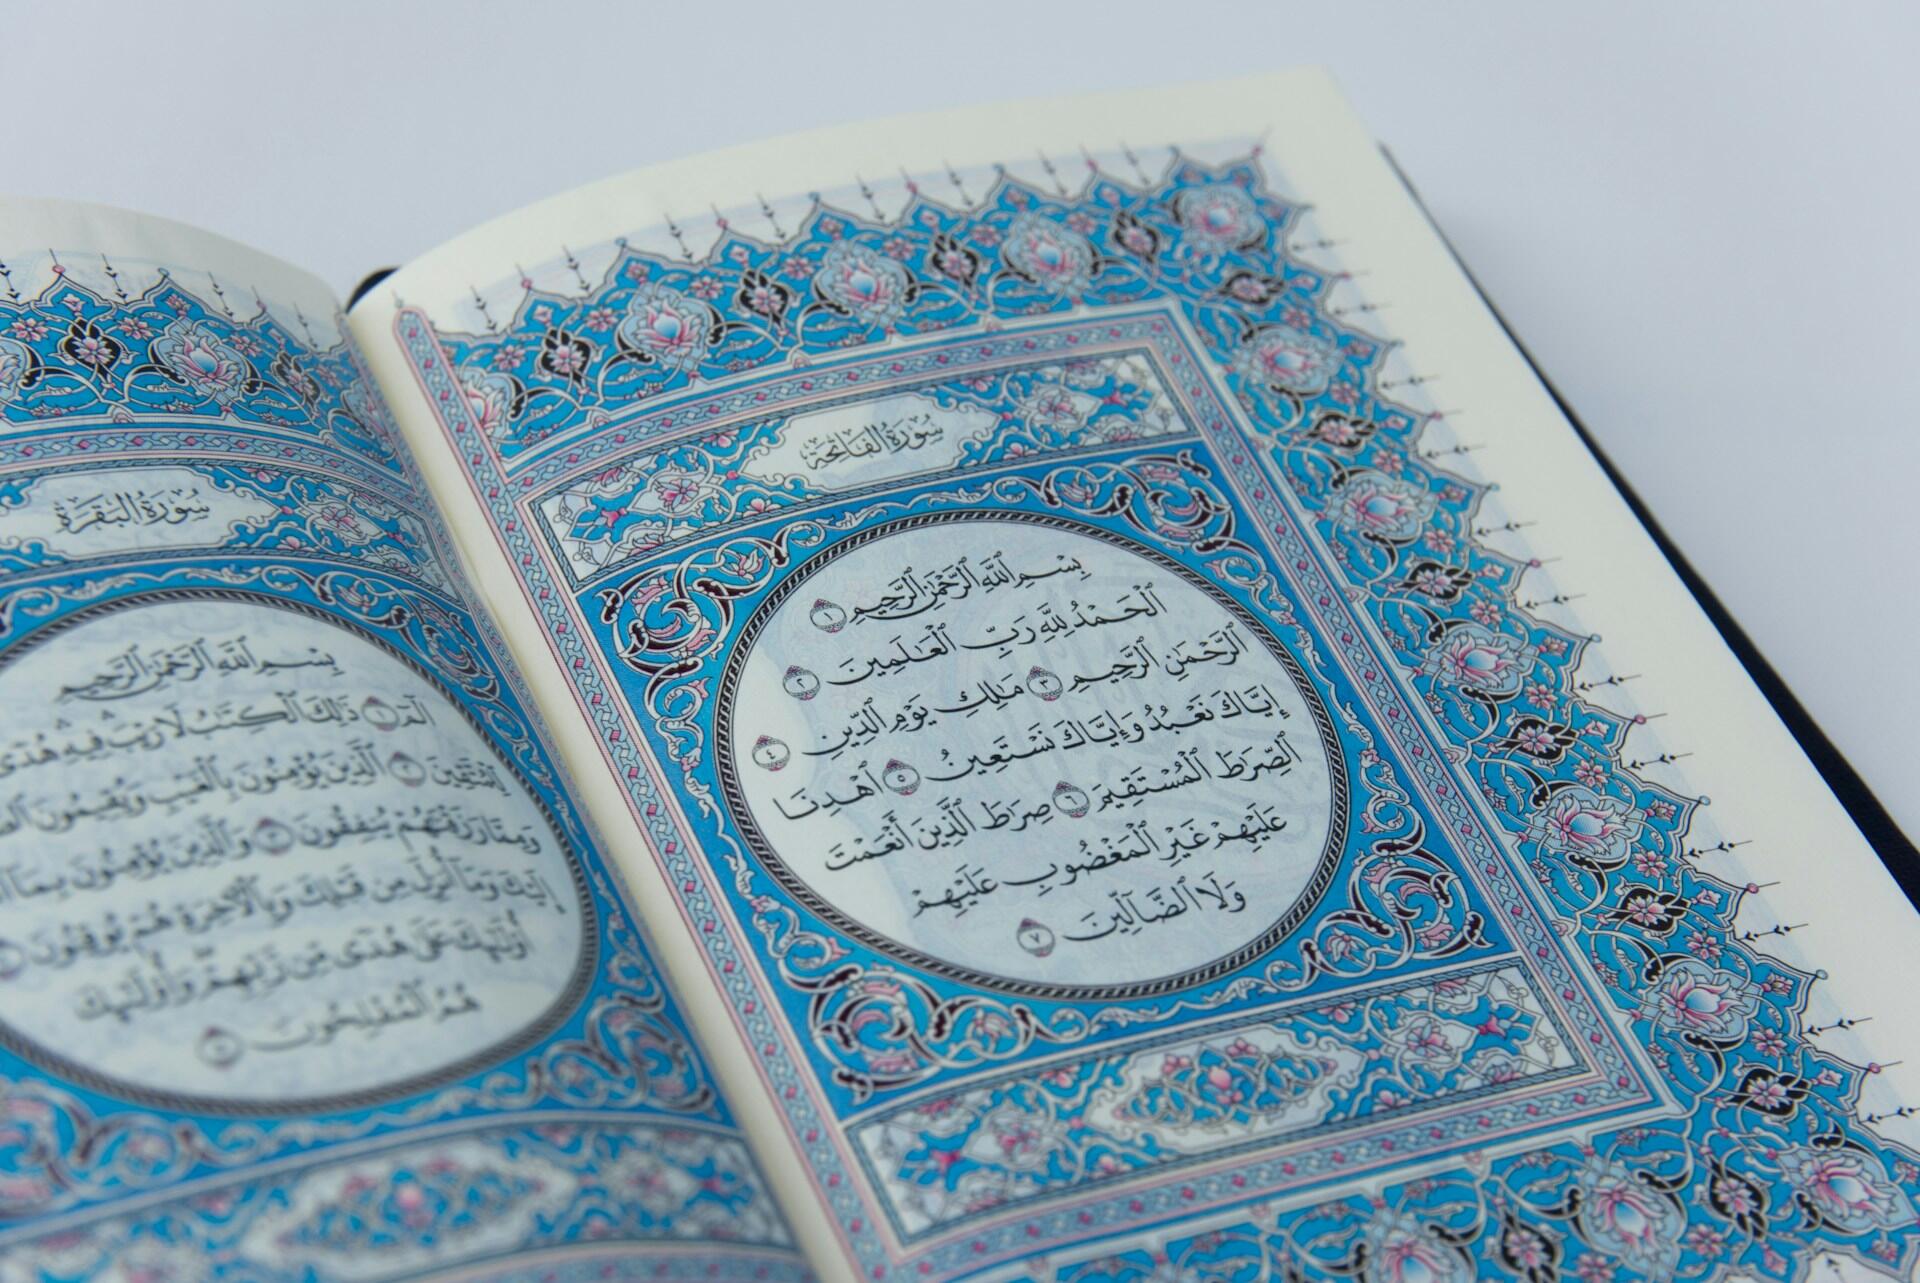 سُورَةُ الفَاتِحَةِ
بِسْمِ ٱللَّهِ ٱلرَّحْمَٰنِ ٱلرَّحِيمِ ١
ٱلْحَمْدُ لِلَّهِ رَبِّ ٱلْعَٰلَمِينَ ٢
ٱلرَّحْمَٰنِ ٱلرَّحِيمِ ٣ مَٰلِكِ يَوْمِ ٱلدِّينِ ٤
إِيَّاكَ نَعْبُدُ وَإِيَّاكَ نَسْتَعِينُ ٥ ٱهْدِنَا
ٱلصِّرَٰطَ ٱلْمُسْتَقِيمَ ٦ صِرَٰطَ ٱلَّذِينَ أَنْعَمْتَ
عَلَيْهِمْ غَيْرِ ٱلْمَغْضُوبِ عَلَيْهِمْ
وَلَا ٱلضَّآلِّينَ ٧
سُورَةُ البَقَرَةِ
بِسْمِ ٱللَّهِ ٱلرَّحْمَٰنِ ٱلرَّحِيمِ
الٓمٓ ١ ذَٰلِكَ ٱلْكِتَٰبُ لَا رَيْبَ فِيهِ هُدًى
لِّلْمُتَّقِينَ ٢ ٱلَّذِينَ يُؤْمِنُونَ بِٱلْغَيْبِ وَيُقِيمُونَ
وَمِمَّا رَزَقْنَٰهُمْ يُنفِقُونَ ٣ وَٱلَّذِينَ يُؤْمِنُونَ بِمَآ
إِلَيْكَ وَمَآ أُنزِلَ مِن قَبْلِكَ وَبِٱلْءَاخِرَةِ هُمْ يُوقِنُونَ
أُو۟لَٰٓئِكَ عَلَىٰ هُدًى مِّن رَّبِّهِمْ وَأُو۟لَٰٓئِكَ
هُمُ ٱلْمُفْلِحُونَ ٥